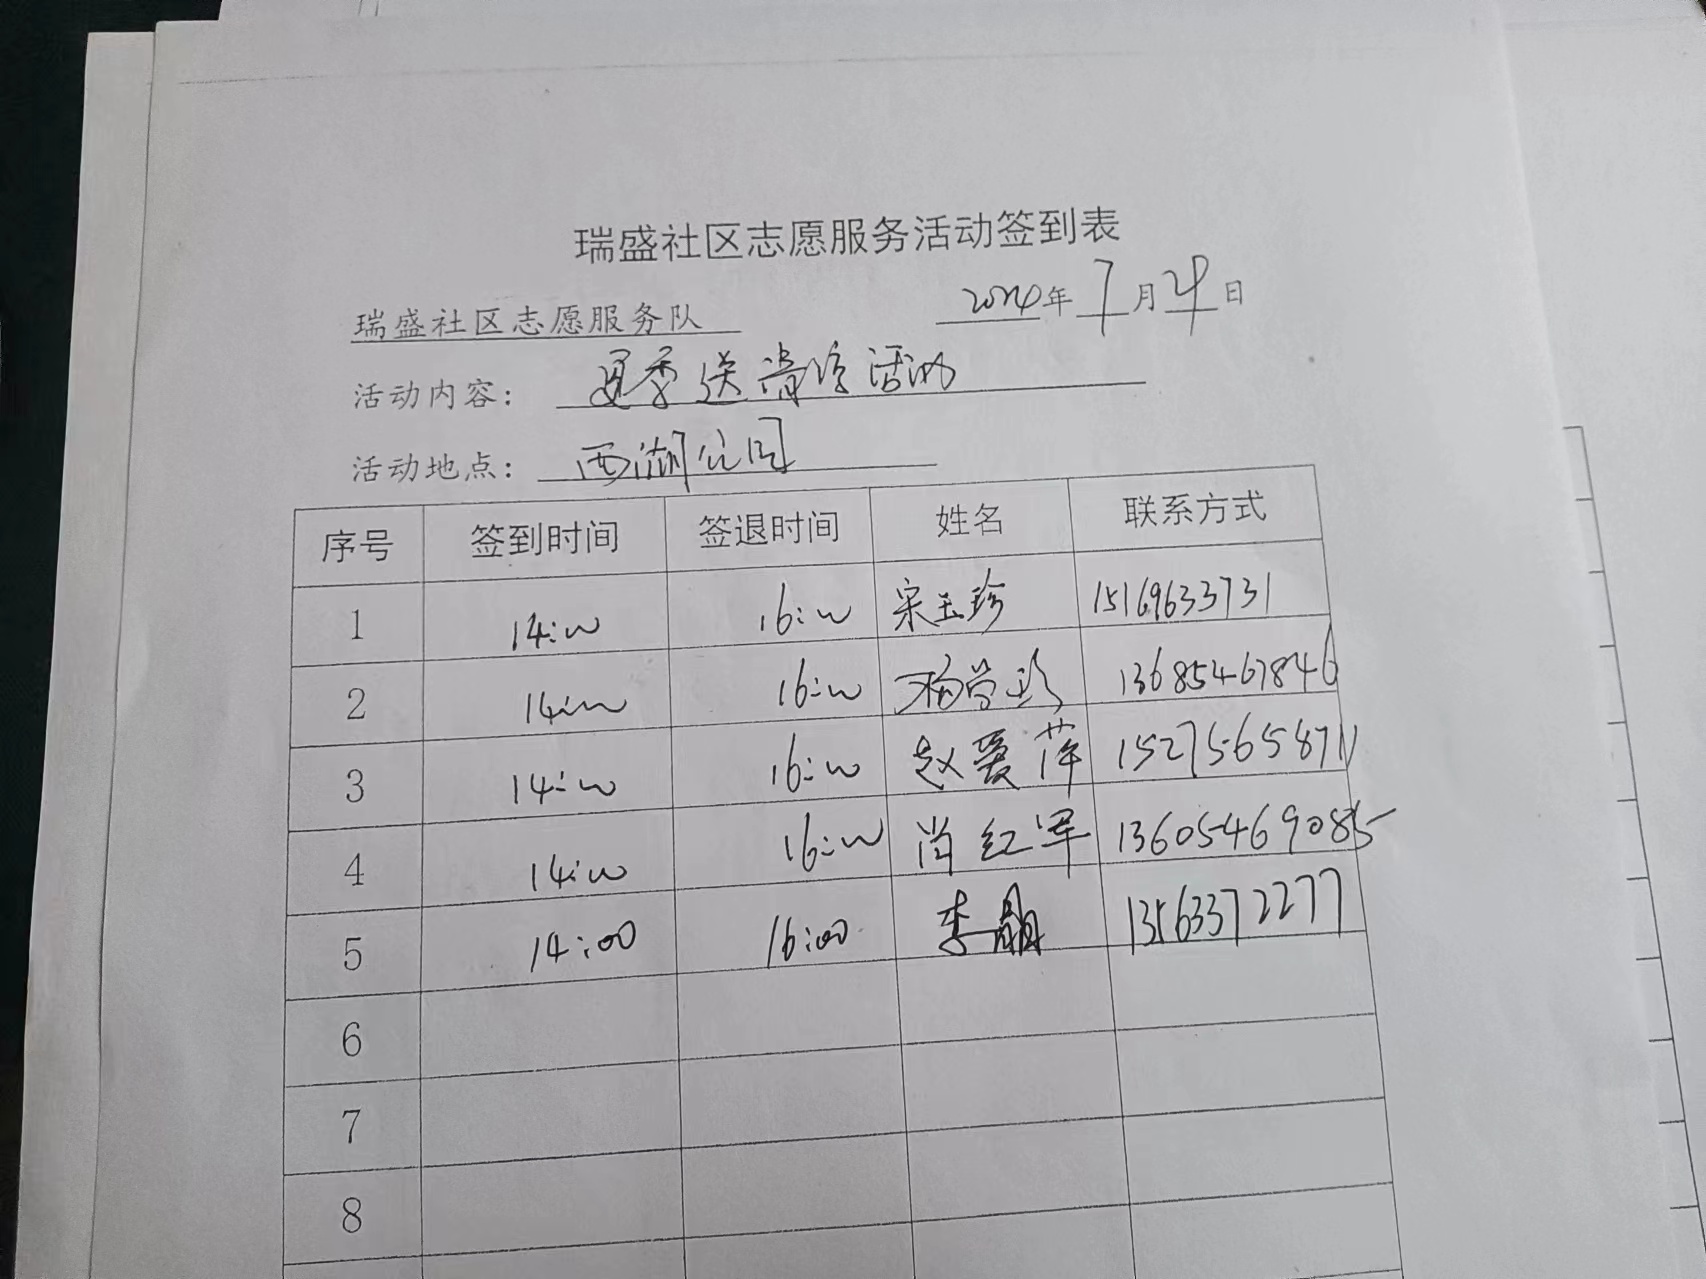 瑞盛社区志愿服务活动签到表
瑞盛社区志愿服务队 2024年7月24日
活动内容： 夏季送清凉活动
活动地点： 西湖公园
序号 签到时间 签退时间 姓名 联系方式
1 14:00 16:00 宋玉珍 15169633731
2 14:00 16:00 杨尚珍 13685467846
3 14:00 16:00 赵爱萍 15275658711
4 14:00 16:00 肖红军 13605469085
5 14:00 16:00 李 13563372277
6
7
8